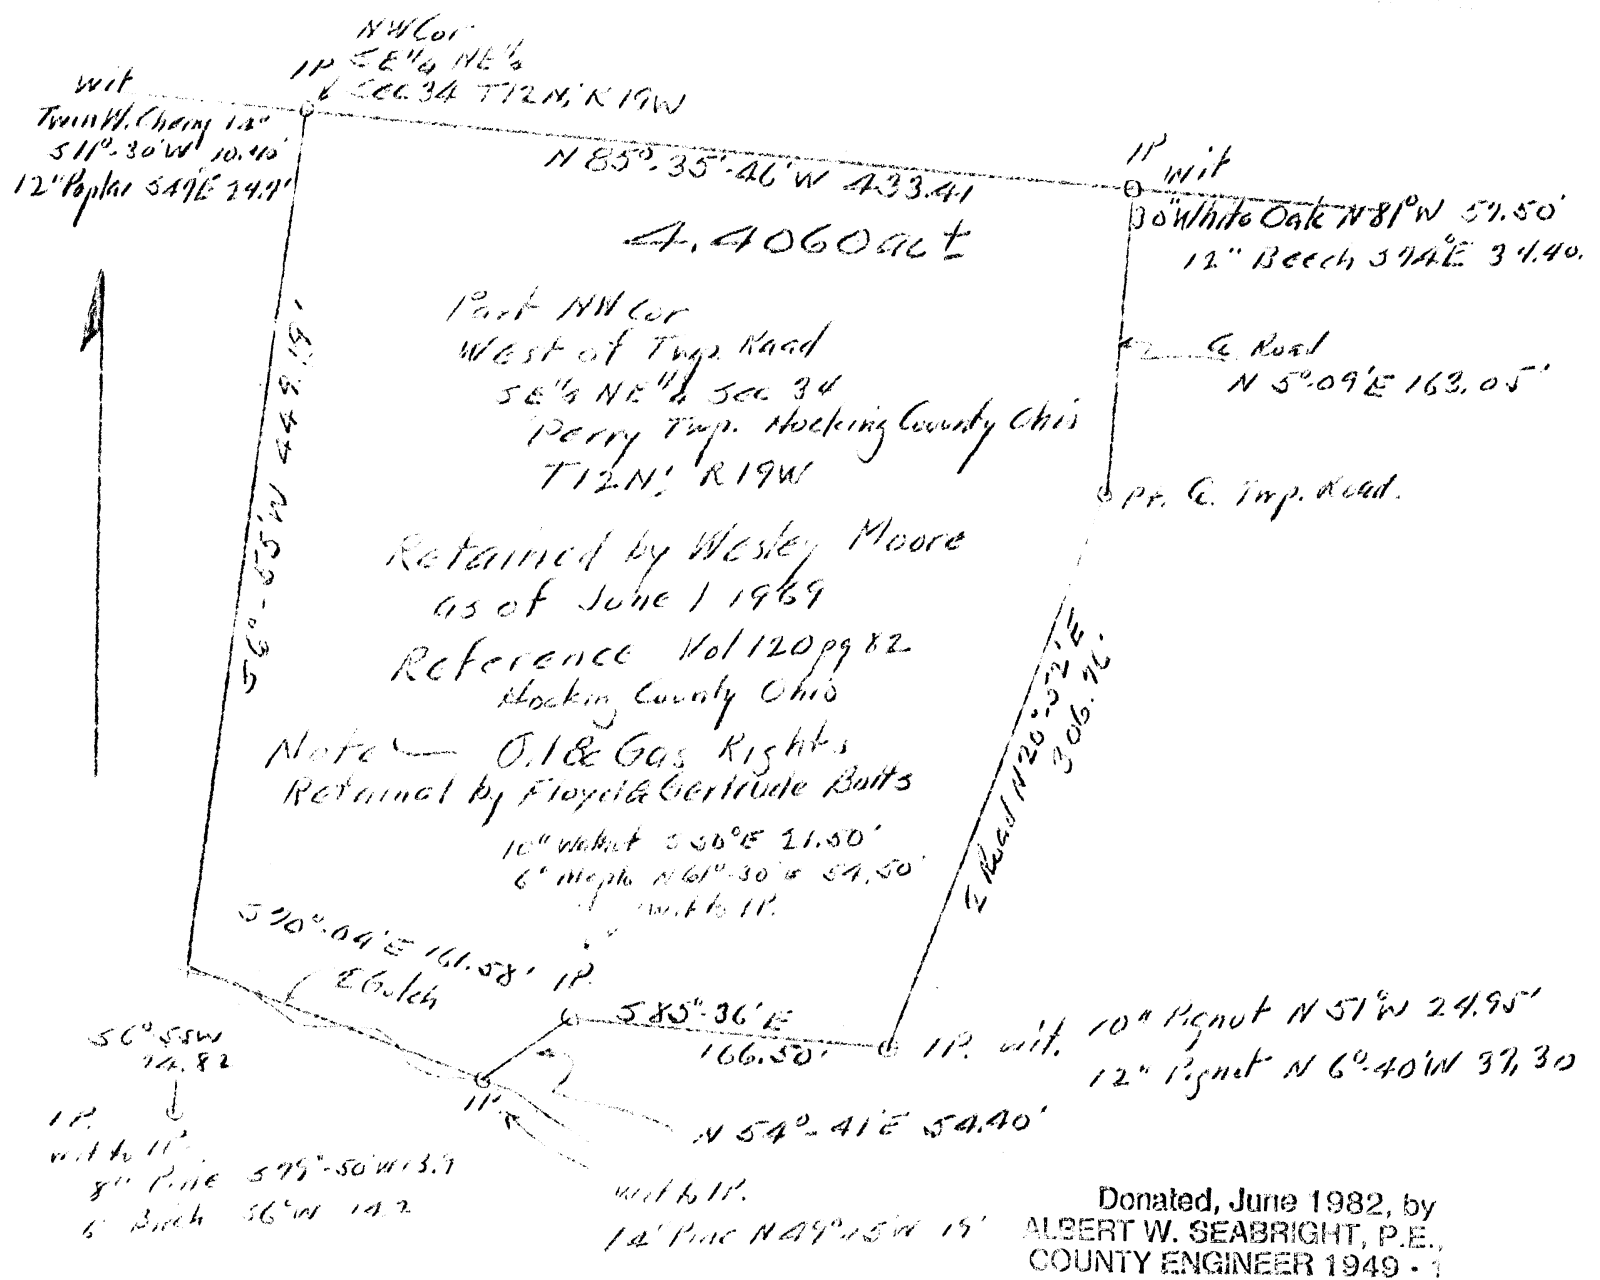 NW Cor
IP SE¼ NE¼
Sec 34 T12N, R19W
wit
Twin W. Cherry 12"
S11°-30'W 10.40'
12" Poplar S49E 24.9'
N 85°-35'-46"W 433.41
4.4060 ac ±
IP wit
30" White Oak N 81°W 57.50'
12" Beech S74°E 37.40.
S6°-55'W 449.19'
Part NW Cor
West of Twp. Road
SE¼ NE¼ Sec 34
Perry Twp. Hocking County Ohio
T12N, R19W
℄ Road
N 5°-09'E 163.05'
Pt. ℄ Twp. Road.
Retained by Wesley Moore
as of June 1 1969
Reference Vol 120 pg 82
Hocking County Ohio
Note — Oil & Gas Rights
Retained by Floyd & Gertrude Butts
℄ Road N20°-52'E
306.76'
10" Walnut S50°E 21.50'
6" Maple N61°-30' 54.50'
wit to IP.
S70°-04'E 161.58'
℄ Gulch
IP.
S85°-36'E
166.50'
IP. wit. 10" Pignut N 51°W 24.95'
12" Pignut N 6°-40'W 37.30
S6°-55W
74.82
IP.
N 54°-41'E 54.40'
IP.
wit to IP.
8" Pine S79°-50'W 13.9
6" Birch S6°W 14.2
wit to IP.
14" Pine N49°-15'W 19'
Donated, June 1982, by
ALBERT W. SEABRIGHT, P.E.,
COUNTY ENGINEER 1949 -